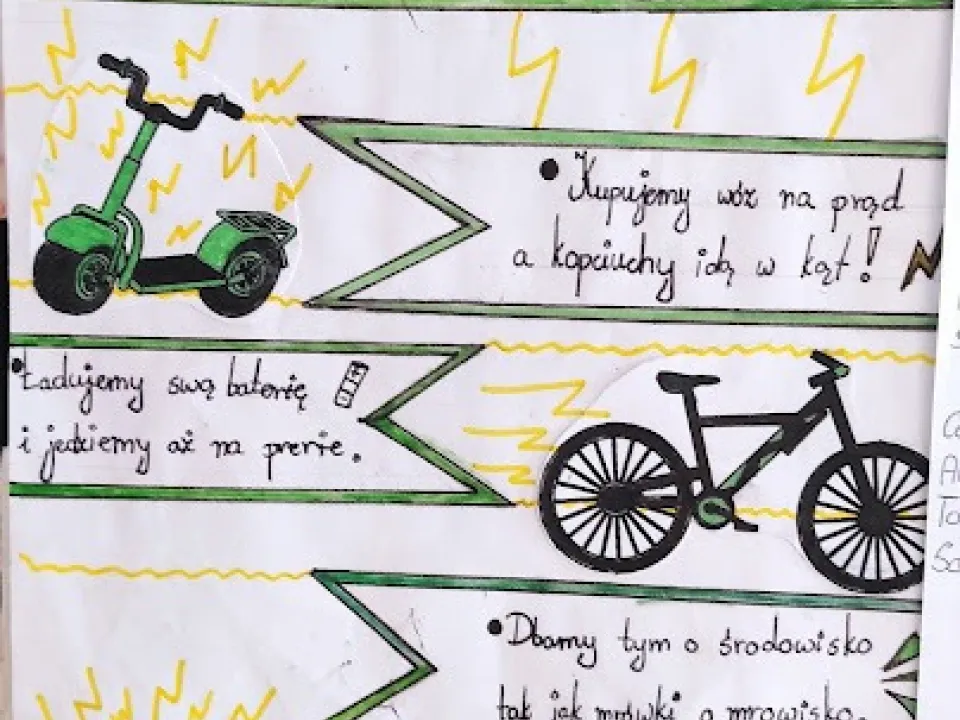 • Kupujemy wóz na prąd
a kopciuchy idą w kąt!
• Ładujemy swą baterię
i jedziemy aż na prerie.
• Dbamy tym o środowisko
tak jak mrówki o mrowisko.